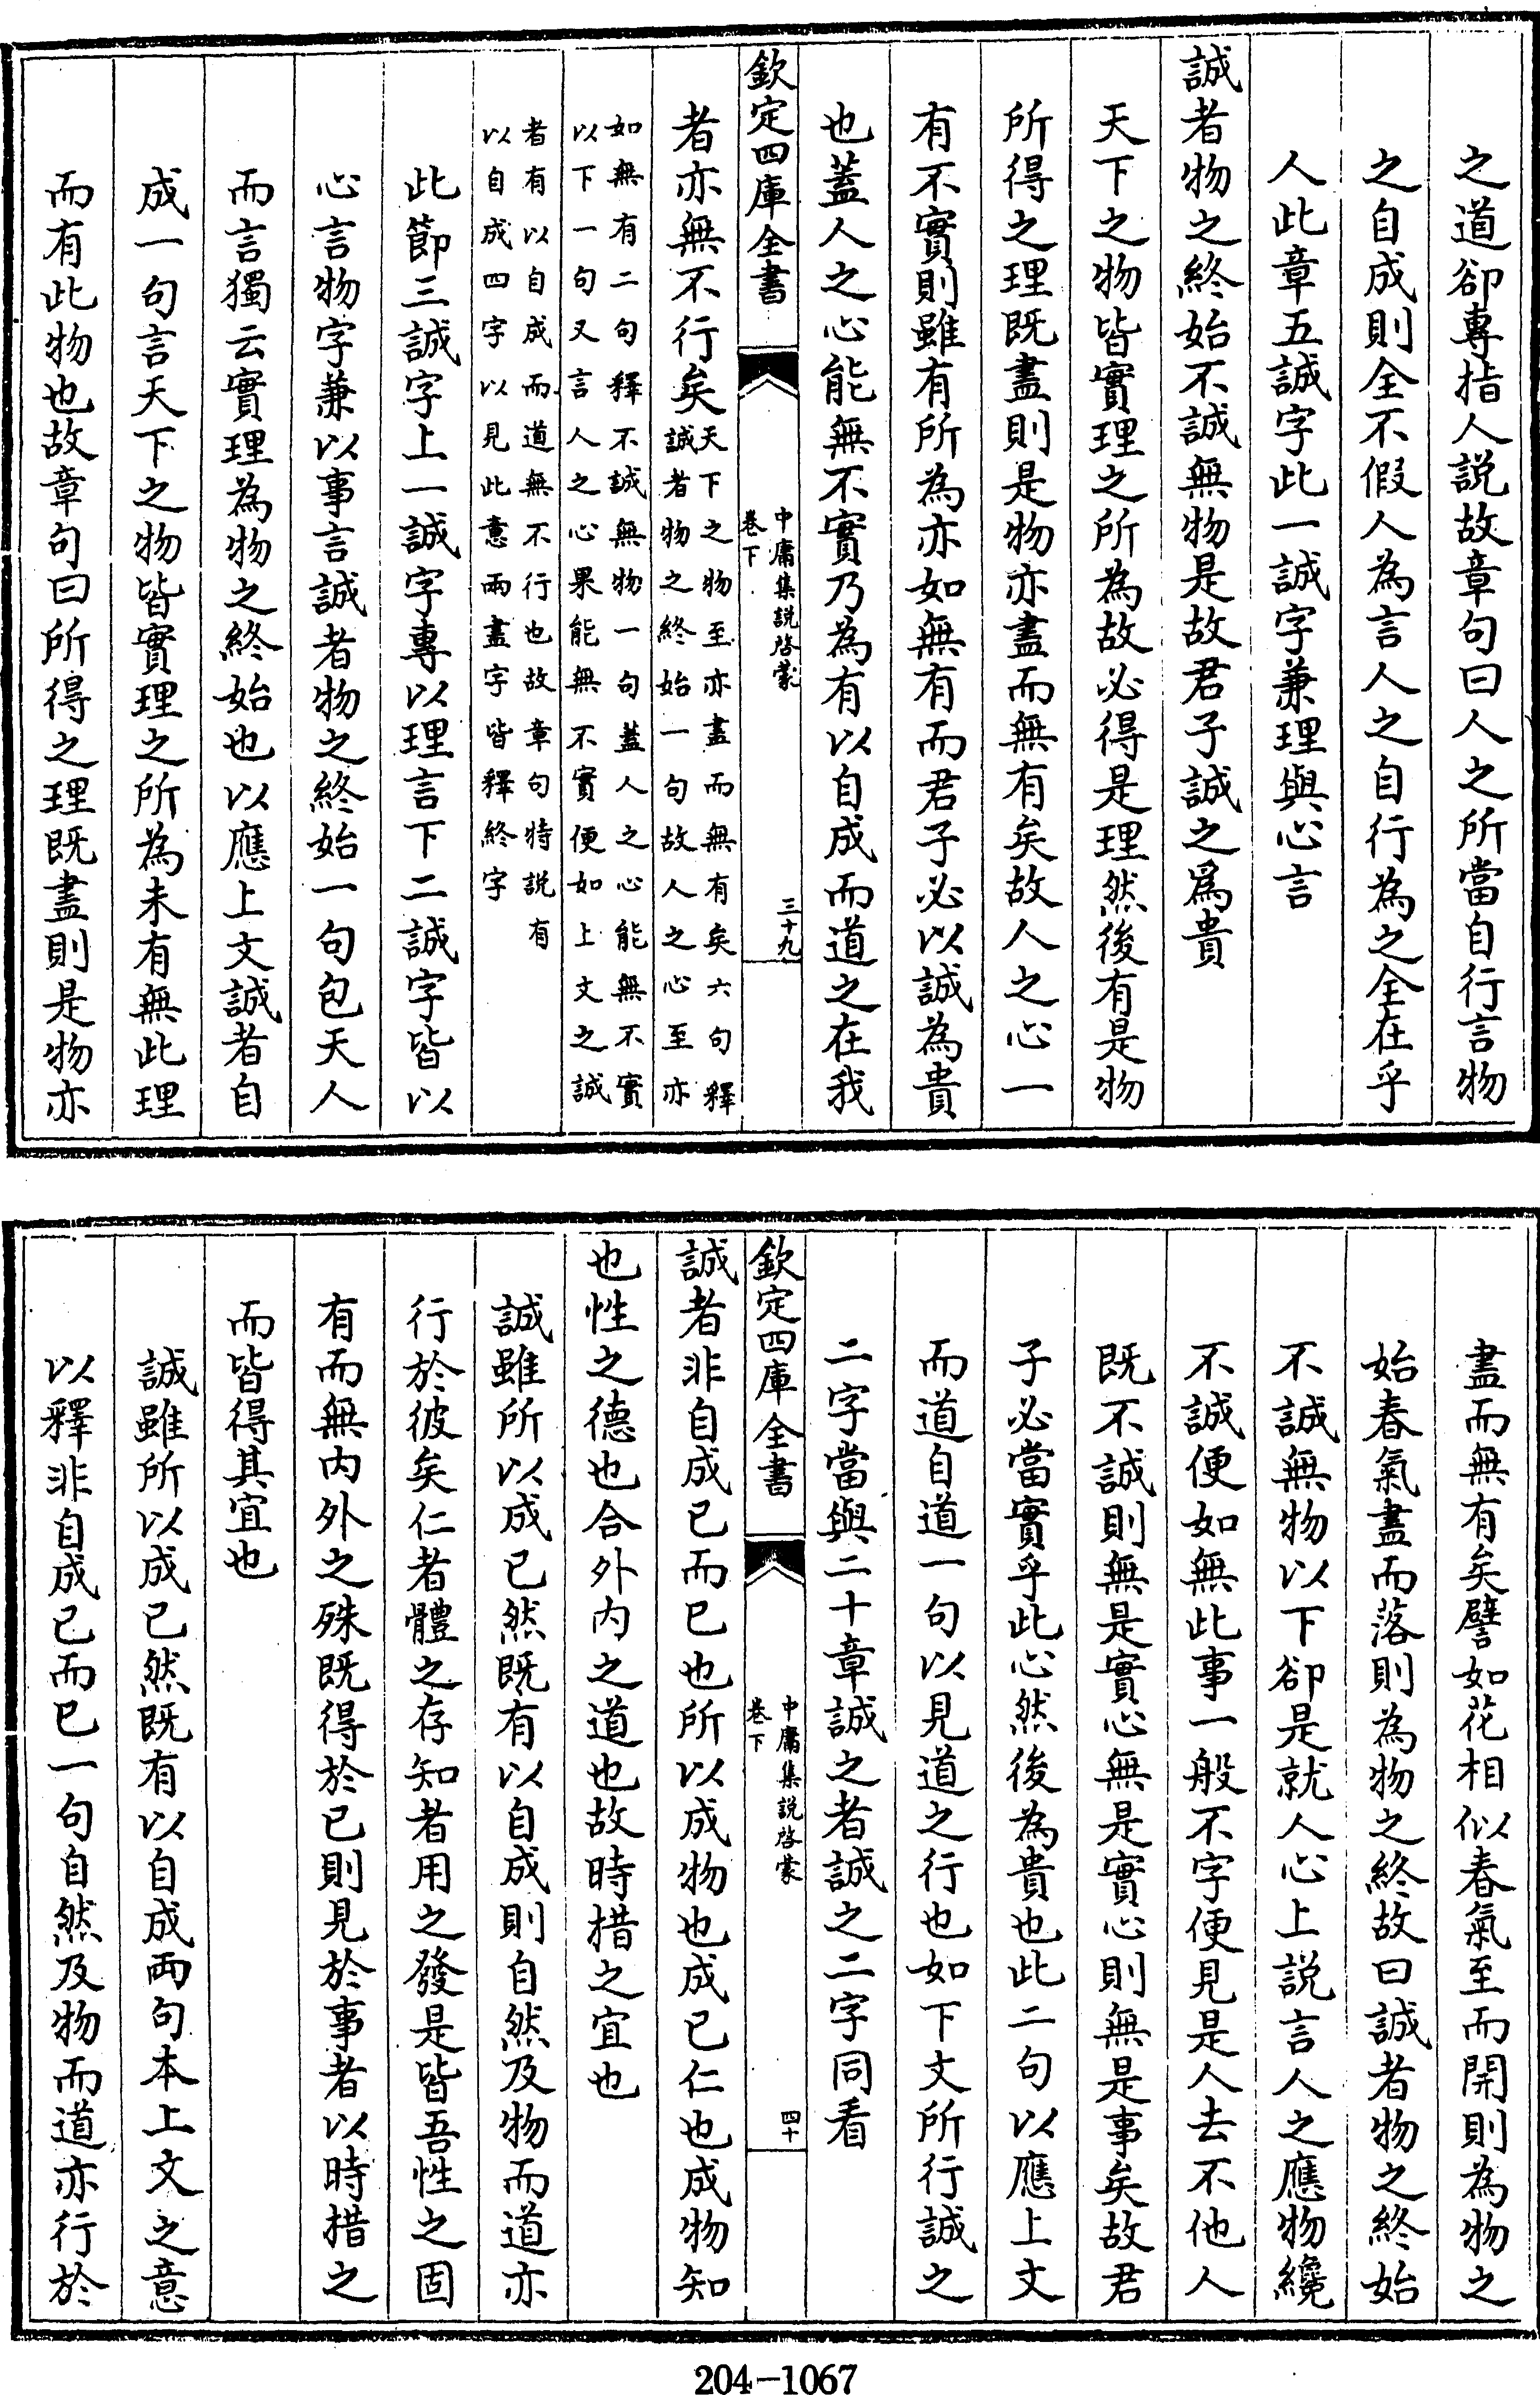 之道卻專指人説故章句曰人之所當自行言物
之自成則全不假人為言人之自行為之全在乎
人此章五誠字此一誠字兼理與心言
誠者物之終始不誠無物是故君子誠之爲貴
天下之物皆實理之所為故必得是理然後有是物
所得之理既盡則是物亦盡而無有矣故人之心一
有不實則雖有所為亦如無有而君子必以誠為貴
也蓋人之心能無不實乃為有以自成而道之在我
欽定四庫全書
中庸集説啓蒙
卷下
三十九
者亦無不行矣
天下之物至亦盡而無有矣六句釋
誠者物之終始一句故人之心至亦
如無有二句釋不誠無物一句蓋人之心能無不實
以下一句又言人之心果能無不實便如上文之誠
者有以自成而道無不行也故章句特説有
以自成四字以見此意兩盡字皆釋終字
此節三誠字上一誠字專以理言下二誠字皆以
心言物字兼以事言誠者物之終始一句包天人
而言獨云實理為物之終始也以應上文誠者自
成一句言天下之物皆實理之所為未有無此理
而有此物也故章句曰所得之理既盡則是物亦
盡而無有矣譬如花相似春氣至而開則為物之
始春氣盡而落則為物之終故曰誠者物之終始
不誠無物以下卻是就人心上説言人之應物纔
不誠便如無此事一般不字便見是人去不他人
既不誠則無是實心無是實心則無是事矣故君
子必當實乎此心然後為貴也此二句以應上文
而道自道一句以見道之行也如下文所行誠之
二字當與二十章誠之者誠之二字同看
欽定四庫全書
中庸集説啓蒙
卷下
四十
誠者非自成已而已也所以成物也成已仁也成物知
也性之德也合外内之道也故時措之宜也
誠雖所以成已然既有以自成則自然及物而道亦
行於彼矣仁者體之存知者用之發是皆吾性之固
有而無内外之殊既得於已則見於事者以時措之
而皆得其宜也
誠雖所以成已然既有以自成兩句本上文之意
以釋非自成已而已一句自然及物而道亦行於
204-1067